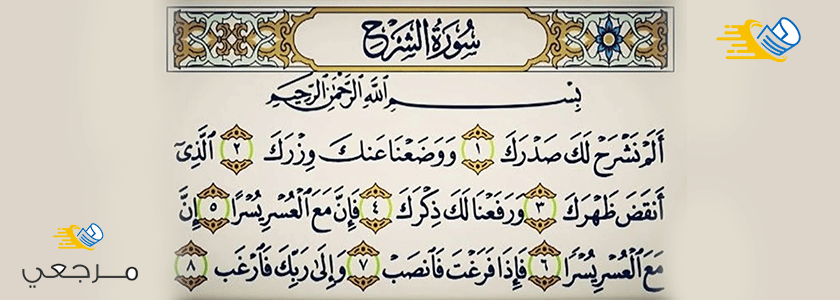 سُورَةُ الشَّرْحِ
بِسْمِ اللَّهِ الرَّحْمَٰنِ الرَّحِيمِ
أَلَمْ نَشْرَحْ لَكَ صَدْرَكَ ١ وَوَضَعْنَا عَنكَ وِزْرَكَ ٢ الَّذِي
أَنقَضَ ظَهْرَكَ ٣ وَرَفَعْنَا لَكَ ذِكْرَكَ ٤ فَإِنَّ مَعَ الْعُسْرِ يُسْرًا ٥ إِنَّ
مَعَ الْعُسْرِ يُسْرًا ٦ فَإِذَا فَرَغْتَ فَانصَبْ ٧ وَإِلَىٰ رَبِّكَ فَارْغَب ٨
مرجعي